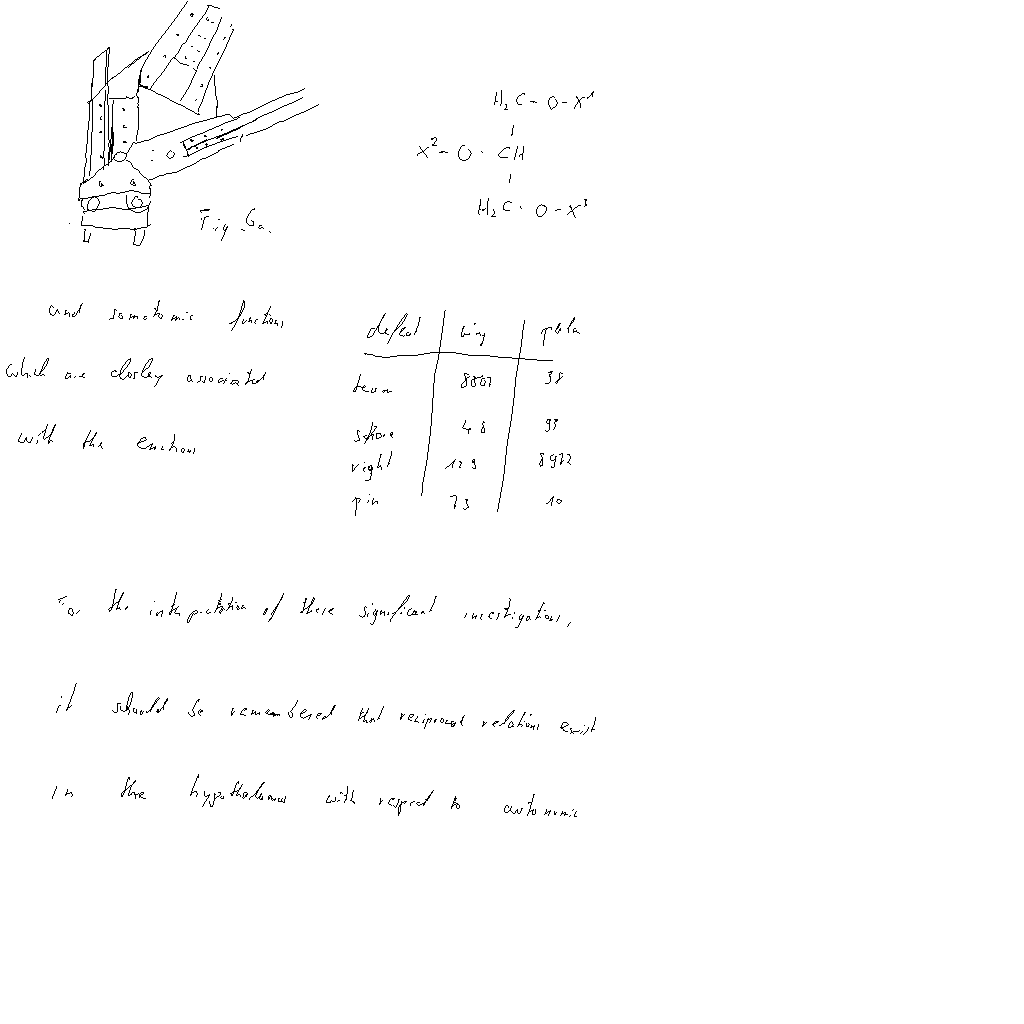 H₂C-O-X¹
X²-O-CH
H₂C-O-X³
Fig 6a.
and somatomic functions
which are closley associated
with the emotions
defeat
38
48 93
right 129 8972
pin 73 10
For the interpretation of these significant investigations,
it should be remembered that reciprocal relations exist
in the hypothalamus with respect to autonomic